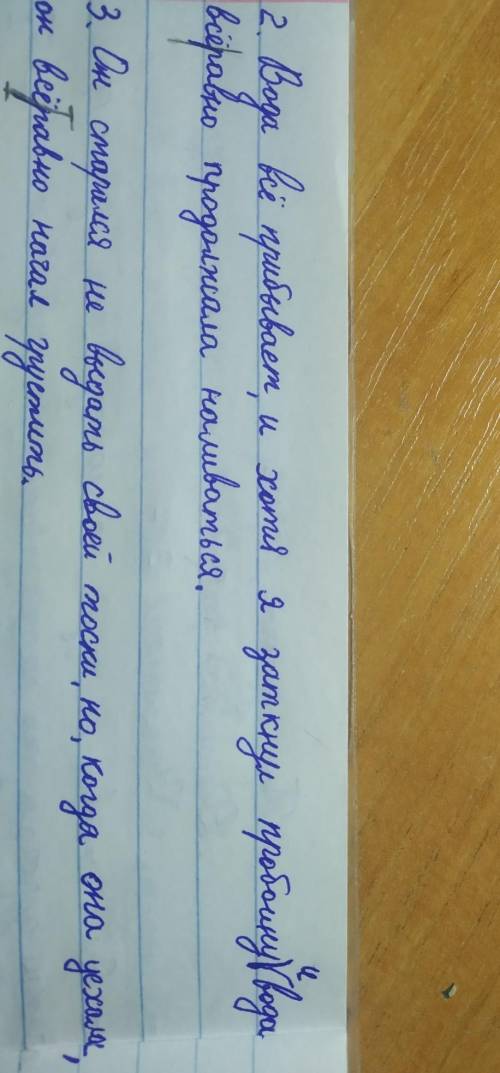 2. Вода всё прибывает, и хотя я заткнул пробоину и вода
всёравно продолжала наливаться.
3. Он старался не выдать своей тоски, но, когда она уехала,
он всёравно начал грустить.